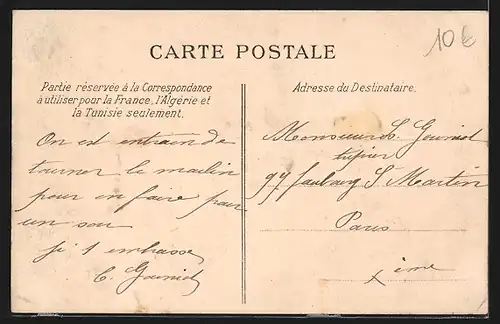 10€
CARTE POSTALE
Partie réservée à la Correspondance
à utiliser pour la France, l'Algérie et
la Tunisie seulement.
Adresse du Destinataire.
On est entrain de
tourner le moulin
pour en faire pour
un sou
Je t embrasse
Monsieur
97 faubourg St Martin
Paris
x ème